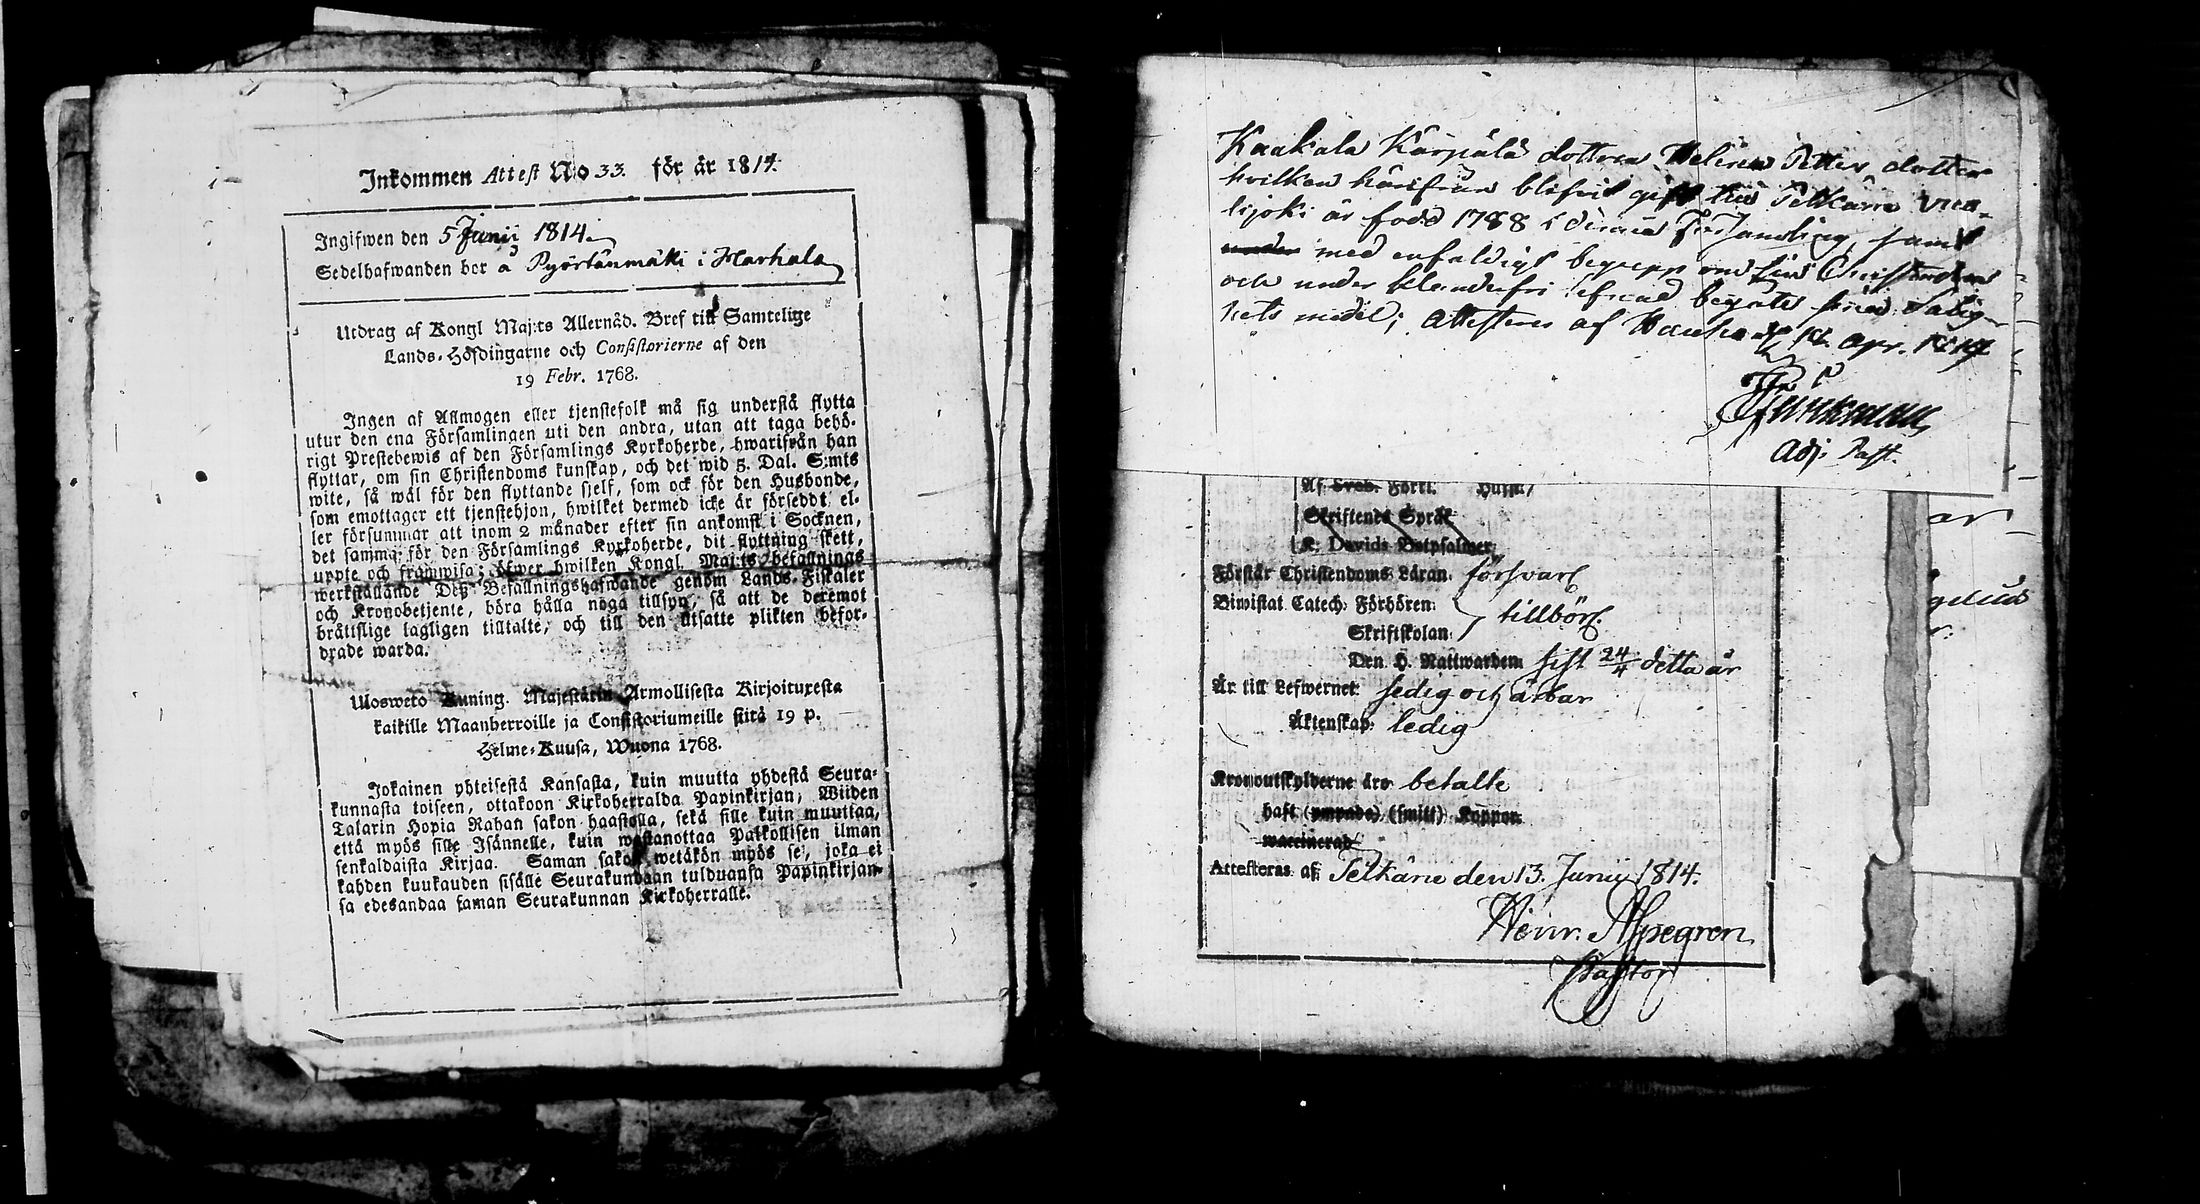 Inkommen Attest No 33. för år 1814.
Ingifwen den 5 Junii 1814.
Sedelhafwanden bor å Pyörtänmäki i Harhala
Utdrag af Kongl Maj:ts Allernåd. Bref till Samtelige
Lands-Höfdingarne och Consistorierne af den
19 Febr. 1768.
Ingen af Allmogen eller tjenstefolk må sig understå flytta
utur den ena Församlingen uti den andra, utan att taga behö-
rigt Prestebewis af den Församlings Kyrkoherde, hwarifrån han
flyttar, om sin Christendoms kunskap, och det wid 5. Dal. S:mts
wite, så wäl för den flyttande sjelf, som ock för den Husbonde,
som emottager ett tjenstehjon, hwilket dermed icke är förseddt, el-
ler försummar att inom 2 månader efter sin ankomst i Socknen,
det samma för den Församlings Kyrkoherde, dit flyttning skett,
uppte och framwisa; öfwer hwilken Kongl. Maj:ts befallnings
werkställande Deß Befallningshafwande genom Lands-Fiskaler
och Kronobetjente, böra hålla noga tillsyn, så att de deremot
bråttslige lagligen tilltalte, och till den utsatte plikten befor-
drade warda.
Uloswető Kuning. Majestätin Armollisesta Kirjoituxesta
kaikille Maanherroille ja Consistoriumeille siitä 19 p.
Helme-Kuusa, Wuona 1768.
Jokainen yhteisestä Kansasta, kuin muutta yhdestä Seura-
kunnasta toiseen, ottakoon Kirkoherralda Papinkirjan, Wiiden
Talarin Hopia Rahan sakon haastolla, sekä sille kuin muuttaa,
että myös sille Isännelle, kuin wastanottaa Palkollisen ilman
senkaldaista Kirjaa. Saman sakon wetäkön myös se, joka ei
kahden kuukauden sisälle Seurakundaan tulduansa Papinkirjan-
sa edesandaa saman Seurakunnan Kirkoherralle.
Kaakala Kärpälä dottren Helena Petters dotter
hvilken härifrån blifvit gift till Pelkäne
lijoki är född 1788 i denna Församling, samt
med enfaldigt begrepp om sin Christendom
och under klanderfri lefnad begått sina Salig-
hets medel; Attesteras af Hauho d. 14 Apr. 1814
Adj. Past.
Af Sveb. Förkl. Hustafl.
Skriftenes Språk
K. Davids Botpsalmer
Förstår Christendoms Läran: försvarl.
Biwistat Catech: Förhören:
Skriftskolan: tillbörl.
Den H. Nattwarden sist 24/4 detta år
Är till Lefwernet: sedig och ärbar
Äktenskap: ledig
Kronoutskylderne äro betalte
haft (ympade) (smitt) Koppor.
waccinerad
Attesteras af: Pelkäne den 13. Junii 1814.
Henr. Alpegren
Pastor
ar